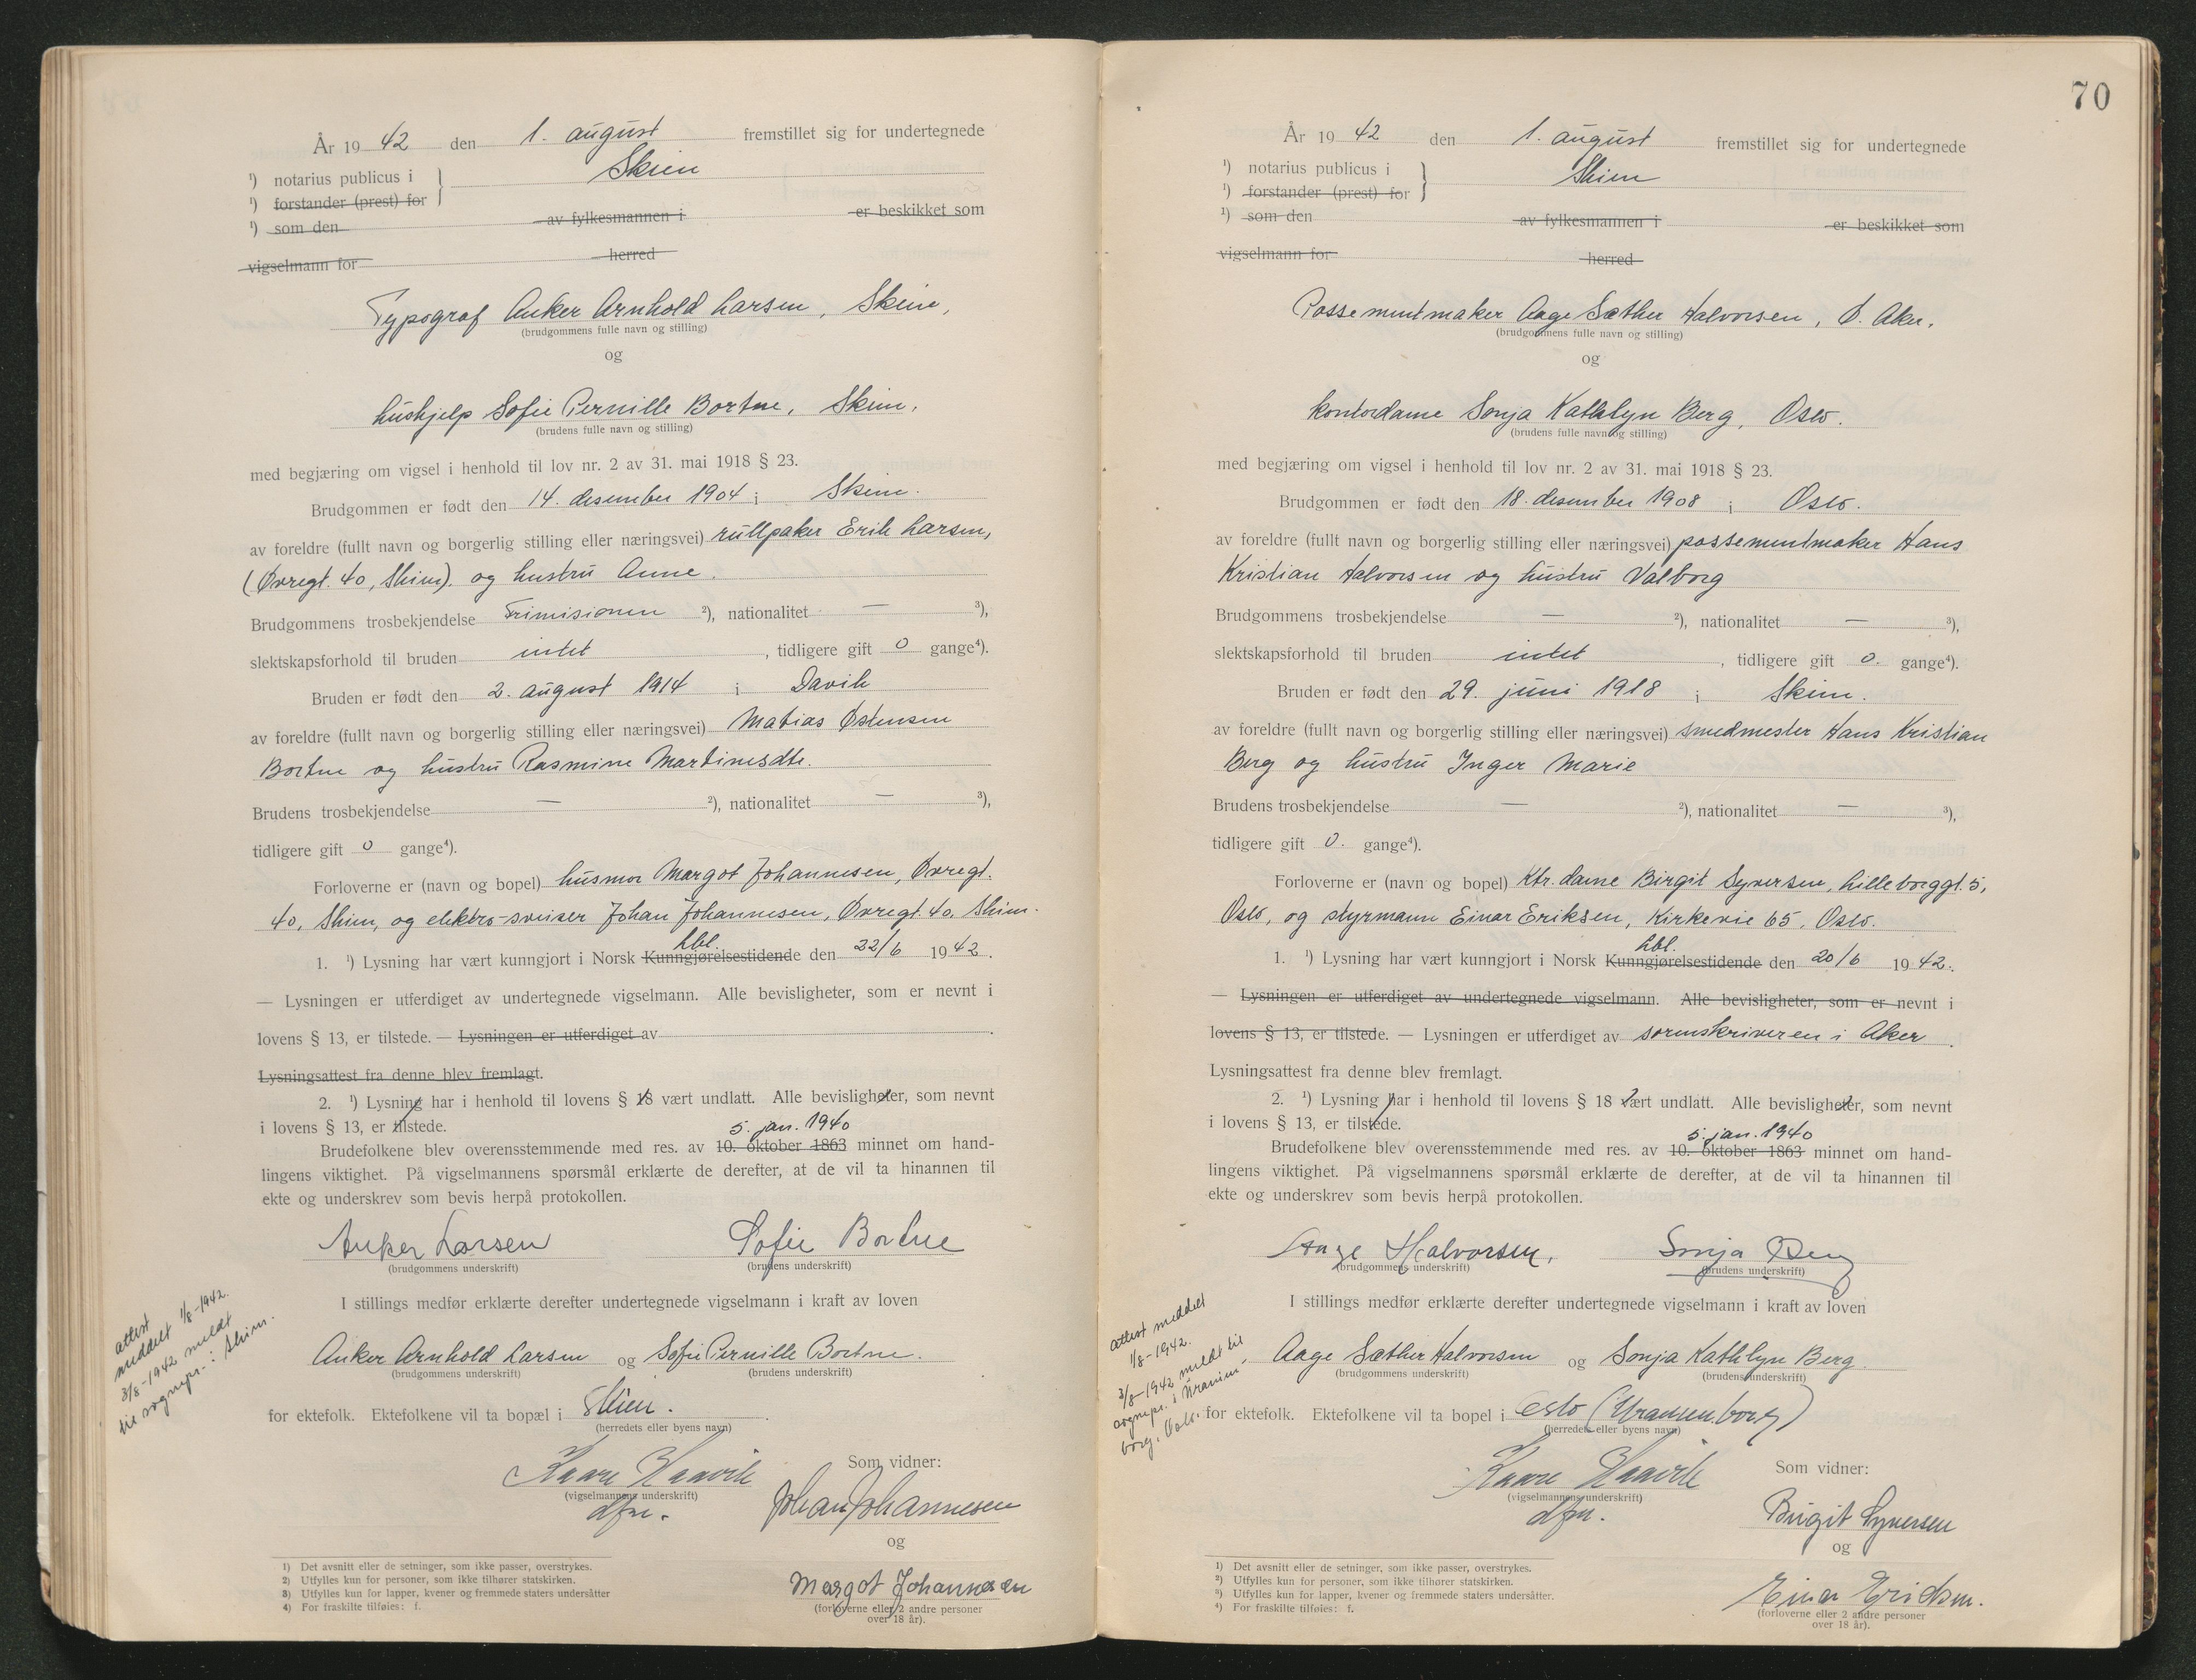 År 19 42 den 1. august fremstillet sig for undertegnede
¹) notarius publicus i } Skien
¹) forstander (prest) for
¹) som den av fylkesmannen i er beskikket som
vigselmann for herred
Typograf Anker Arnhold Larsen, Skien,
(brudgommens fulle navn og stilling)
og
hushjelp Sofie Pernille Bortne, Skien,
(brudens fulle navn og stilling)
med begjæring om vigsel i henhold til lov nr. 2 av 31. mai 1918 § 23.
Brudgommen er født den 14. desember 1904 i Skien.
av foreldre (fullt navn og borgerlig stilling eller næringsvei) rullpaker Erik Larsen,
(Øvregt. 40, Skien). og hustru Anne.
Brudgommens trosbekjendelse Frimisionen ²), nationalitet — ³),
slektskapsforhold til bruden intet , tidligere gift 0 gange⁴).
Bruden er født den 2. august 1914 i Davik
av foreldre (fullt navn og borgerlig stilling eller næringsvei) Matias Østensen
Bortne og hustru Rasmine Martinesdtr.
Brudens trosbekjendelse — ²), nationalitet — ³),
tidligere gift 0 gange⁴).
Forloverne er (navn og bopel) husmor Margot Johannesen, Øvregt.
40, Skien, og elektro-sveiser Johan Johannesen, Øvregt. 40, Skien.
lbl.
1. ¹) Lysning har vært kunngjort i Norsk Kunngjørelsestidende den 22/6 1942.
— Lysningen er utferdiget av undertegnede vigselmann. Alle bevisligheter, som er nevnt i
lovens § 13, er tilstede. — Lysningen er utferdiget av .
Lysningsattest fra denne blev fremlagt.
2. ¹) Lysning har i henhold til lovens § 18 vært undlatt. Alle bevisligheter, som nevnt
i lovens § 13, er tilstede.
5. jan. 1940
Brudefolkene blev overensstemmende med res. av 10. oktober 1863 minnet om hand-
lingens viktighet. På vigselmannens spørsmål erklærte de derefter, at de vil ta hinannen til
ekte og underskrev som bevis herpå protokollen.
Anker Larsen Sofie Bortne
(brudgommens underskrift) (brudens underskrift)
I stillings medfør erklærte derefter undertegnede vigselmann i kraft av loven
Anker Arnhold Larsen og Sofie Pernille Bortne.
(brudgommens underskrift) (brudens underskrift)
for ektefolk. Ektefolkene vil ta bopæl i Skien.
(herredets eller byens navn)
attest
meddelt 1/8-1942.
3/8-1942 meldt
til sognepr. i Skien.
Kaare Haavik
(vigselmannens underskrift)
dfm.
Som vidner:
Johan Johannesen
og
Margot Johannesen
(forloverne eller 2 andre personer
over 18 år).
1) Det avsnitt eller de setninger, som ikke passer, overstrykes.
2) Utfylles kun for personer, som ikke tilhører statskirken.
3) Utfylles kun for lapper, kvener og fremmede staters undersåtter
4) For fraskilte tilføies: f.
70
År 19 42 den 1. august fremstillet sig for undertegnede
¹) notarius publicus i } Skien
¹) forstander (prest) for
¹) som den av fylkesmannen i er beskikket som
vigselmann for herred
Possementmaker Aage Sæther Halvorsen, Ø. Aker.
(brudgommens fulle navn og stilling)
og
kontordame Sonja Kathlyn Berg, Oslo.
(brudens fulle navn og stilling)
med begjæring om vigsel i henhold til lov nr. 2 av 31. mai 1918 § 23.
Brudgommen er født den 18. desember 1908 i Oslo.
av foreldre (fullt navn og borgerlig stilling eller næringsvei) possementmaker Hans
Kristian Halvorsen og hustru Valborg
Brudgommens trosbekjendelse — ²), nationalitet — ³),
slektskapsforhold til bruden intet , tidligere gift 0. gange⁴).
Bruden er født den 29. juni 1918 i Skien.
av foreldre (fullt navn og borgerlig stilling eller næringsvei) smedmester Hans Kristian
Berg og hustru Inger Marie
Brudens trosbekjendelse — ²), nationalitet — ³),
tidligere gift 0. gange⁴).
Forloverne er (navn og bopel) Ktr.dame Birgit Syversen, Lilleborggt. 5,
Oslo, og styrmann Einar Eriksen, Kirkevie 65, Oslo.
lbl.
1. ¹) Lysning har vært kunngjort i Norsk Kunngjørelsestidende den 20/6 1942.
— Lysningen er utferdiget av undertegnede vigselmann. Alle bevisligheter, som er nevnt i
lovens § 13, er tilstede. — Lysningen er utferdiget av sorenskriveren i Aker.
Lysningsattest fra denne blev fremlagt.
2. ¹) Lysning har i henhold til lovens § 18 vært undlatt. Alle bevisligheter, som nevnt
i lovens § 13, er tilstede.
5. jan. 1940
Brudefolkene blev overensstemmende med res. av 10. oktober 1863 minnet om hand-
lingens viktighet. På vigselmannens spørsmål erklærte de derefter, at de vil ta hinannen til
ekte og underskrev som bevis herpå protokollen.
Aage Halvorsen, Sonja Berg
(brudgommens underskrift) (brudens underskrift)
I stillings medfør erklærte derefter undertegnede vigselmann i kraft av loven
Aage Sæther Halvorsen og Sonja Kathlyn Berg.
(brudgommens underskrift) (brudens underskrift)
for ektefolk. Ektefolkene vil ta bopel i Oslo (Uranienborg)
(herredets eller byens navn)
attest meddelt
1/8-1942.
3/8-1942 meldt til
sognepr. i Uranien-
borg, Oslo.
Kaare Haavik
(vigselmannens underskrift)
dfm.
Som vidner:
Birgit Syversen
og
Einar Eriksen.
(forloverne eller 2 andre personer
over 18 år).
1) Det avsnitt eller de setninger, som ikke passer, overstrykes.
2) Utfylles kun for personer, som ikke tilhører statskirken.
3) Utfylles kun for lapper, kvener og fremmede staters undersåtter.
4) For fraskilte tilføies: f.